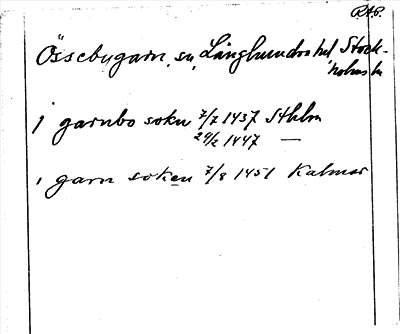 RAP.
Össebygarn, sn, Långhundra hd, Stock-
holms län
i garnbo sokn 7/7 1437 Sthlm
29/2 1447 —
i garn soken 7/8 1451 Kalmar